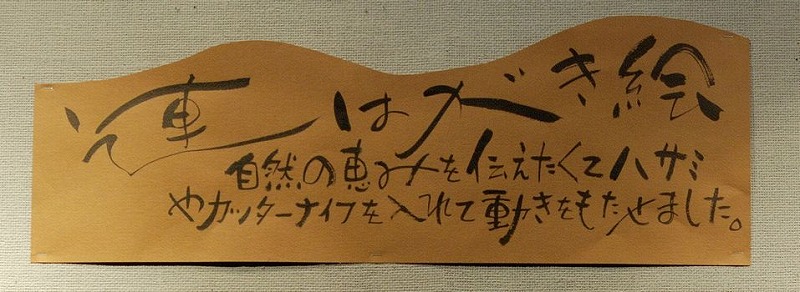 連はがき絵
自然の恵みを伝えたくてハサミ
やカッターナイフを入れて動きをもたせました。